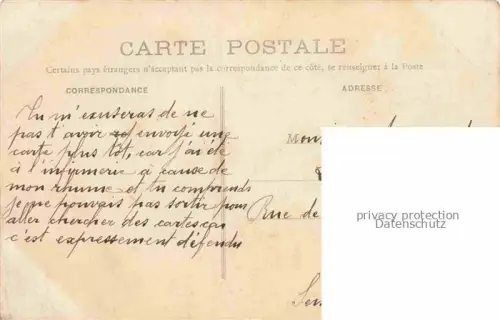 CARTE POSTALE
Certains pays étrangers n'acceptant pas la correspondance de ce côté, se renseigner à la Poste
CORRESPONDANCE
ADRESSE
Tu m'excuseras de ne
pas t'avoir envoyé une
carte plus tôt, car j'ai été
à l'infirmerie à cause de
mon rhume et tu comprends
je ne pouvais pas sortir pour
aller chercher des cartes, car
c'est expressément défendu
Rue de
privacy protection
Datenschutz